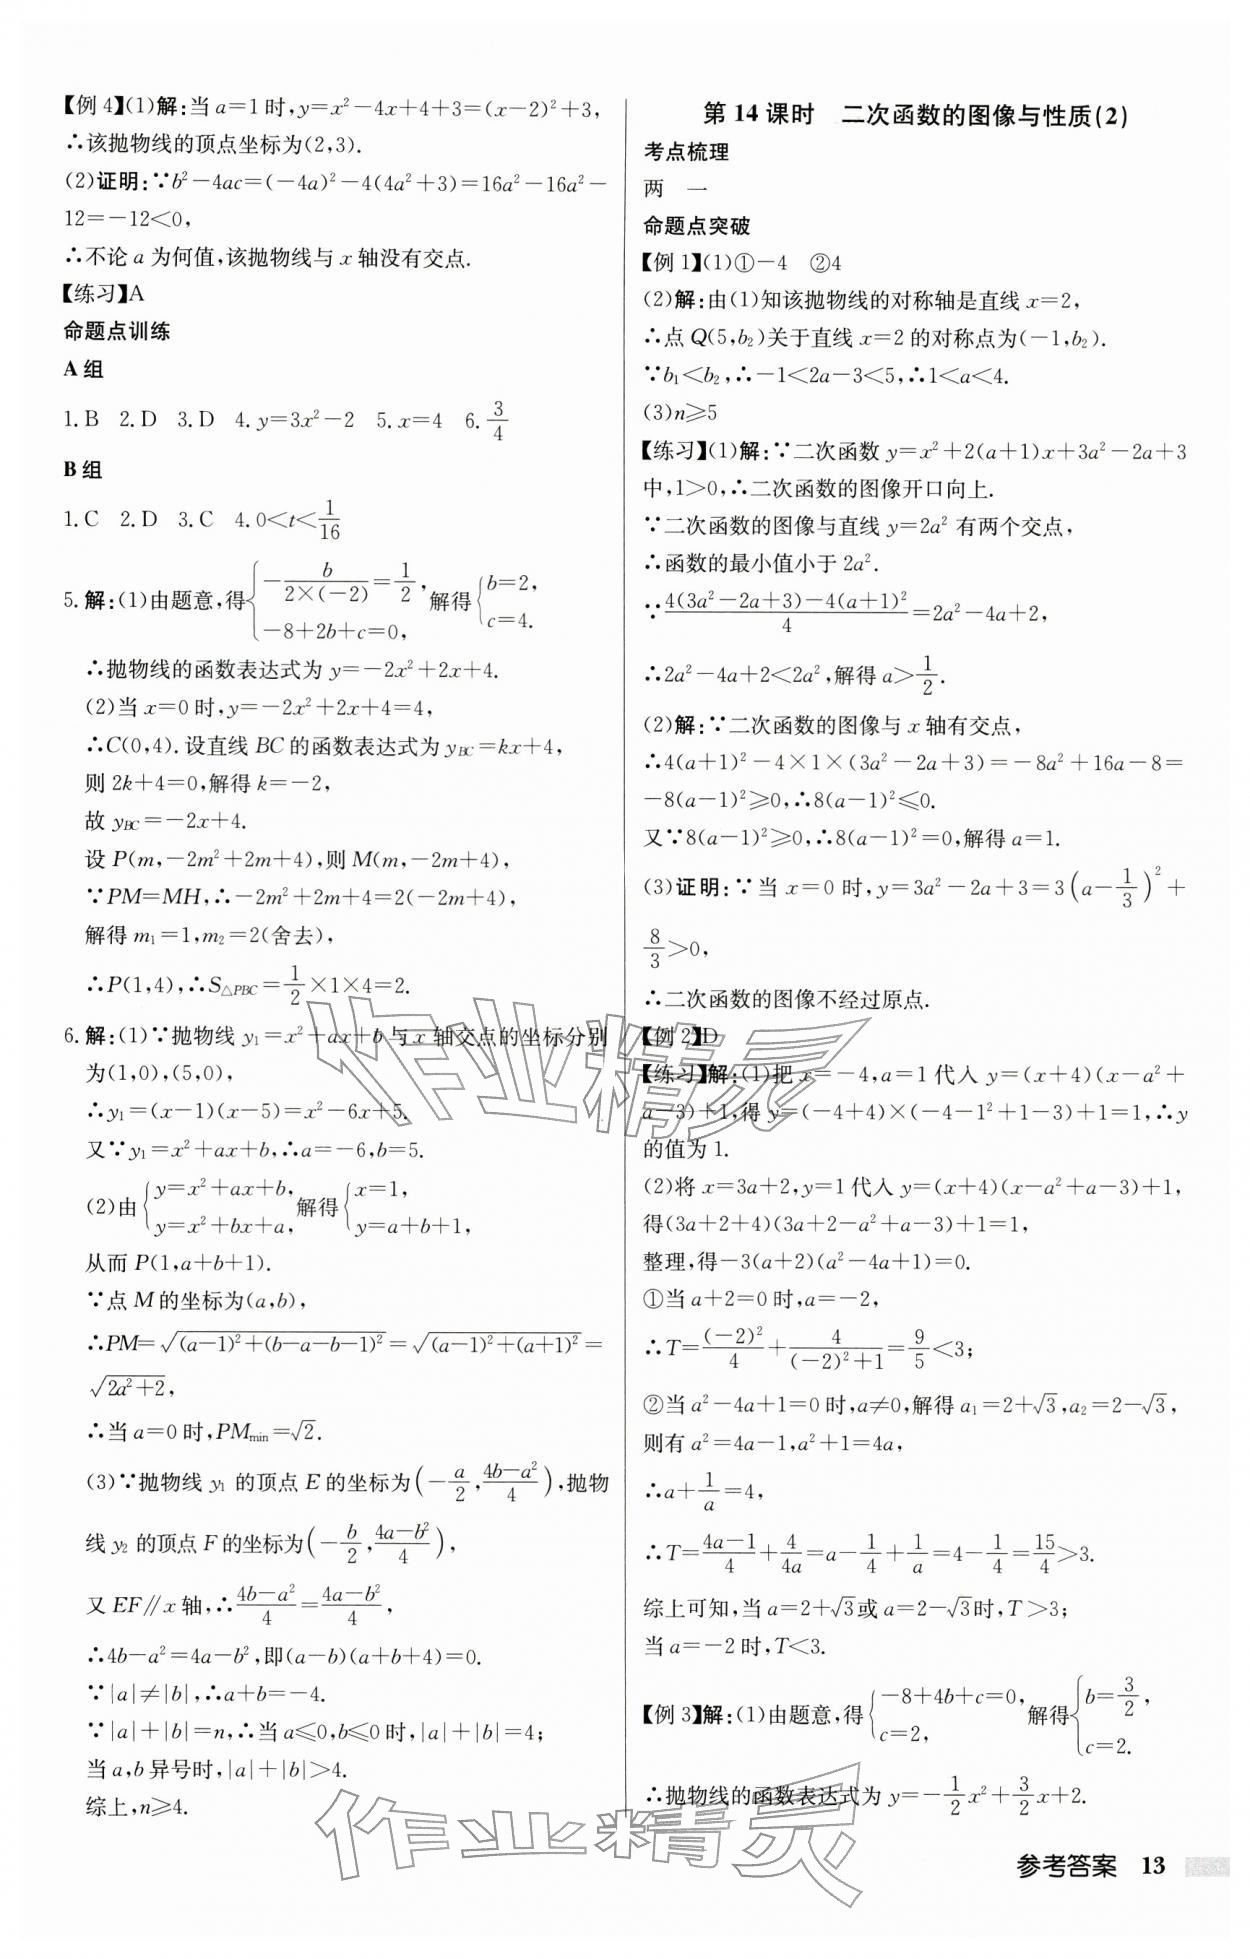 【例 4】(1)解:当 a=1 时,y=x²-4x+4+3=(x-2)²+3,
∴该抛物线的顶点坐标为(2,3).
(2)证明:∵b²-4ac=(-4a)²-4(4a²+3)=16a²-16a²-
12=-12<0,
∴不论 a 为何值,该抛物线与 x 轴没有交点.
【练习】A
命题点训练
A 组
1. B 2. D 3. D 4. y=3x²-2 5. x=4 6. 3/4
B 组
1. C 2. D 3. C 4. 0<t<1/16
5. 解:(1)由题意,得{-b/(2×(-2))=1/2, -8+2b+c=0, 解得{b=2, c=4.
∴抛物线的函数表达式为 y=-2x²+2x+4.
(2)当 x=0 时,y=-2x²+2x+4=4,
∴C(0,4). 设直线 BC 的函数表达式为 y_BC=kx+4,
则 2k+4=0,解得 k=-2,
故 y_BC=-2x+4.
设 P(m,-2m²+2m+4),则 M(m,-2m+4),
∵PM=MH,∴-2m²+2m+4=2(-2m+4),
解得 m₁=1,m₂=2(舍去),
∴P(1,4),∴S△PBC=1/2×1×4=2.
6. 解:(1)∵抛物线 y₁=x²+ax+b 与 x 轴交点的坐标分别
为(1,0),(5,0),
∴y₁=(x-1)(x-5)=x²-6x+5.
又∵y₁=x²+ax+b,∴a=-6,b=5.
(2)由{y=x²+ax+b, y=x²+bx+a, 解得{x=1, y=a+b+1,
从而 P(1,a+b+1).
∵点 M 的坐标为(a,b),
∴PM=√((a-1)²+(b-a-b-1)²)=√((a-1)²+(a+1)²)=
√(2a²+2),
∴当 a=0 时,PM_min=√2.
(3)∵抛物线 y₁ 的顶点 E 的坐标为(-a/2,(4b-a²)/4),抛物
线 y₂ 的顶点 F 的坐标为(-b/2,(4a-b²)/4),
又 EF∥x 轴,∴(4b-a²)/4=(4a-b²)/4,
∴4b-a²=4a-b²,即(a-b)(a+b+4)=0.
∵|a|≠|b|,∴a+b=-4.
∵|a|+|b|=n,∴当 a≤0,b≤0 时,|a|+|b|=4;
当 a,b 异号时,|a|+|b|>4.
综上,n≥4.
第 14 课时 二次函数的图像与性质(2)
考点梳理
两 一
命题点突破
【例 1】(1)①-4 ②4
(2)解:由(1)知该抛物线的对称轴是直线 x=2,
∴点 Q(5,b₂)关于直线 x=2 的对称点为(-1,b₂).
∵b₁<b₂,∴-1<2a-3<5,∴1<a<4.
(3)n≥5
【练习】(1)解:∵二次函数 y=x²+2(a+1)x+3a²-2a+3
中,1>0,∴二次函数的图像开口向上.
∵二次函数的图像与直线 y=2a² 有两个交点,
∴函数的最小值小于 2a².
∵(4(3a²-2a+3)-4(a+1)²)/4=2a²-4a+2,
∴2a²-4a+2<2a²,解得 a>1/2.
(2)解:∵二次函数的图像与 x 轴有交点,
∴4(a+1)²-4×1×(3a²-2a+3)=-8a²+16a-8=
-8(a-1)²≥0,∴8(a-1)²≤0.
又∵8(a-1)²≥0,∴8(a-1)²=0,解得 a=1.
(3)证明:∵当 x=0 时,y=3a²-2a+3=3(a-1/3)²+
8/3>0,
∴二次函数的图像不经过原点.
【例 2】D
【练习】解:(1)把 x=-4,a=1 代入 y=(x+4)(x-a²+
a-3)+1,得 y=(-4+4)×(-4-1²+1-3)+1=1,∴y
的值为 1.
(2)将 x=3a+2,y=1 代入 y=(x+4)(x-a²+a-3)+1,
得(3a+2+4)(3a+2-a²+a-3)+1=1,
整理,得-3(a+2)(a²-4a+1)=0.
①当 a+2=0 时,a=-2,
∴T=(-2)²/4+4/((-2)²+1)=9/5<3;
②当 a²-4a+1=0 时,a≠0,解得 a₁=2+√3,a₂=2-√3,
则有 a²=4a-1,a²+1=4a,
∴a+1/a=4,
∴T=(4a-1)/4+4/4a=a-1/4+1/a=4-1/4=15/4>3.
综上可知,当 a=2+√3或 a=2-√3时,T>3;
当 a=-2 时,T<3.
【例 3】解:(1)由题意,得{-8+4b+c=0, c=2, 解得{b=3/2, c=2.
∴抛物线的函数表达式为 y=-1/2x²+3/2x+2.
作业精灵
作业精灵
参考答案 13